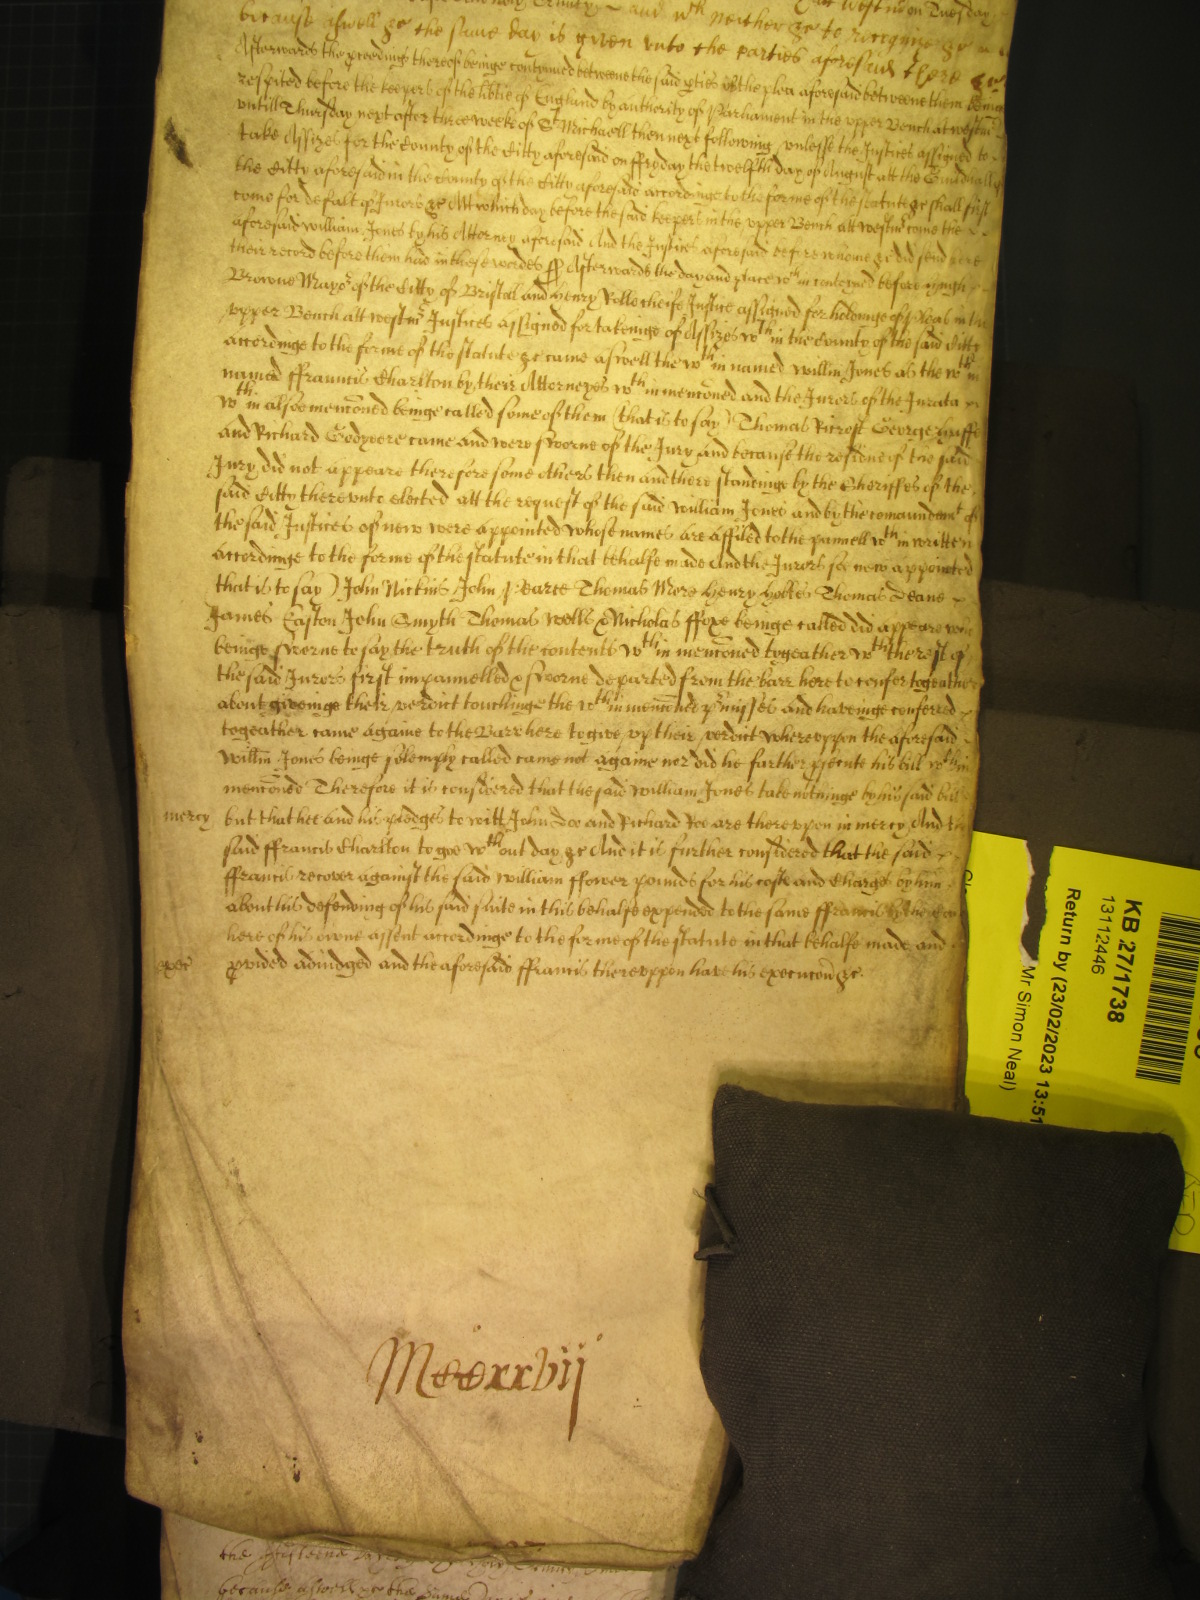 West
on Tuesday
and wth neither &c to recognize &c
because aswell &c the same day is given unto the parties aforesaid there &c
Afterwards the pceedings thereof beinge contynued betweene the said pties of the plea aforesaid betweene them beinge
respited before the keepers of the libtie of England by authority of Parliament in the upper Bench at westm
untill Thursday next after three weeks of St Michaell then next following unlesse the Justices assigned to
take Assizes for the County of the Citty aforesaid on ffryday the twelfth day of August att the Guildhall of
the Citty aforesaid in the County of the Citty aforesaid accordinge to the forme of the statute &c shall first
come for default of Jurors &c Att which day before the said keepers in the upper Bench att westmr come the
aforesaid william Jones by his Attorney aforesaid And the Justices aforesaid before whome &c did send here
their record before them had in these wordes ss Afterwards the day and place wthin conteyned before Hugh
Browne Mayor of the Citty of Bristoll and Henry Rolle cheife Justice assigned for holdinge of pleas in the
upper Bench att westmr Justices assigned for takeinge of Assizes wthin the County of the said Citty
accordinge to the forme of the statute &c came aswell the wthin named Willm Jones as the wthin
named ffrancis Charlton by their Attorneyes wthin menconed and the Jurors of the Jurata
wthin alsoe menconed beinge called some of them (that is to say) Thomas Ricroft George
and Richard Godyeere came and were sworne of the Jury and because the residue of the said
Jury did not appeare therefore some others then and there standinge by the Sheriffes of the
said Citty thereunto elected att the request of the said William Jones and by the comaundemt of
the said Justices of new were appointed whose names are affiled to the pannell wthin written
accordinge to the forme of the statute in that behalfe made And the Jurors soe new appointed
that is to say) John Nickins John Pearce Thomas More Henry Thomas Deane
James Easton John Smyth Thomas Wells & Nicholas ffoxe beinge called did appeare who
beinge sworne to say the truth of the contents wthin menconed togeather wth the rest of
the said Jurors first impannelled & sworne departed from the barr here to confer togeather
about giveinge their verdict touchinge the wthin menconed pmisses and haveinge conferred
togeather came againe to the Barr here to give up their verdict whereuppon the aforesaid
Willm Jones beinge solemply called came not againe nor did he farther psecute his bill wthin
menconed Therefore it is considered that the said William Jones take nothinge by his said bill
mercy but that hee and his pledges to witt John Doe and Richard Roe are thereupon in mercy And the
said ffrancis Charlton to goe wthout day &c And it is further considered that the said
ffrancis recover against the said William ffower pounds for his costs and Charges by him
about his defending of his said suite in this behalfe expended to the same ffrancis by the Court
here of his owne assent accordinge to the forme of the statute in that behalfe made and
pvided adiudged and the aforesaid ffrancis thereuppon have his execucon &c
Mccxxvij
because aswell &c the same
KB 27/1738
13112446
Return by (23/02/2023 13:51
Mr Simon Neal)